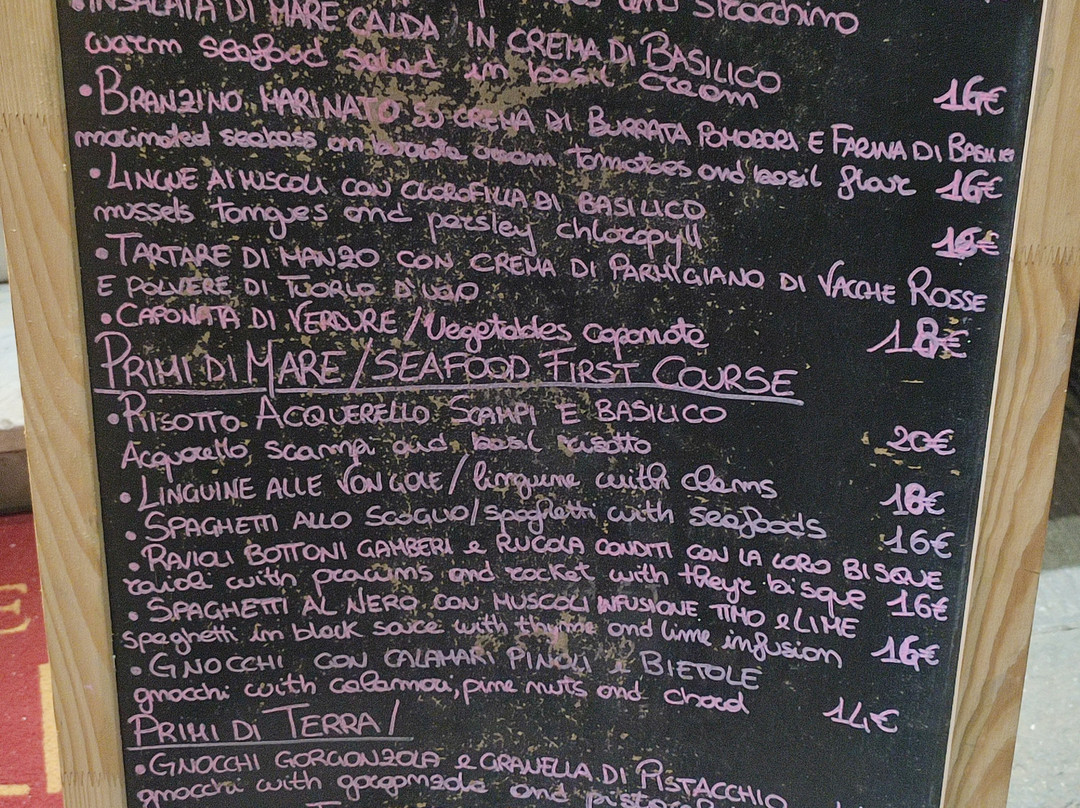 stracchino
INSALATA DI MARE CALDA IN CREMA DI BASILICO
warm seafood salad in basil cream 16€
• BRANZINO MARINATO SU CREMA DI BURRATA POMODORI E FARINA DI BASILICO
marinated seabass on burrata cream tomatoes and basil flour 16€
• LINGUE AI MUSCOLI CON CLOROFILLA DI BASILICO
mussels tongues and parsley chloropyll 16€
• TARTARE DI MANZO CON CREMA DI PARMIGIANO DI VACCHE ROSSE
E POLVERE DI TUORLO D'UOVO
• CAPONATA DI VERDURE / Vegetables caponata 18€
PRIMI DI MARE / SEAFOOD FIRST COURSE
• RISOTTO ACQUERELLO SCAMPI E BASILICO
Acquerello, scampi and basil risotto 20€
• LINGUINE ALLE VONGOLE / linguine with clams 18€
• SPAGHETTI ALLO SCOGLIO / spaghetti with seafoods 16€
• RAVIOLI BOTTONI GAMBERI e RUCOLA CONDITI CON LA LORO BISQUE
ravioli with prawns and rocket with theyr bisque 16€
• SPAGHETTI AL NERO CON MUSCOLI INFUSIONE TIMO e LIME
spaghetti in black sauce with thyme and lime infusion 16€
• GNOCCHI CON CALAMARI PINOLI e BIETOLE
gnocchi with calamari, pine nuts and chard 14€
PRIMI DI TERRA /
• GNOCCHI GORGONZOLA e GRANELLA DI PISTACCHIO
gnocchi with gorgonzola and
E